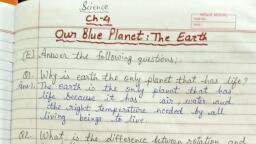 Science
Ch-4
Our Blue Planet : The Earth
(E) Answer the following questions:
Q1. Why is earth the only planet that has life?
Ans1. The earth is the only planet that has
life because it has air, water and
the right temperature needed by all
living beings to live.
Q2. What is the difference between rotation and